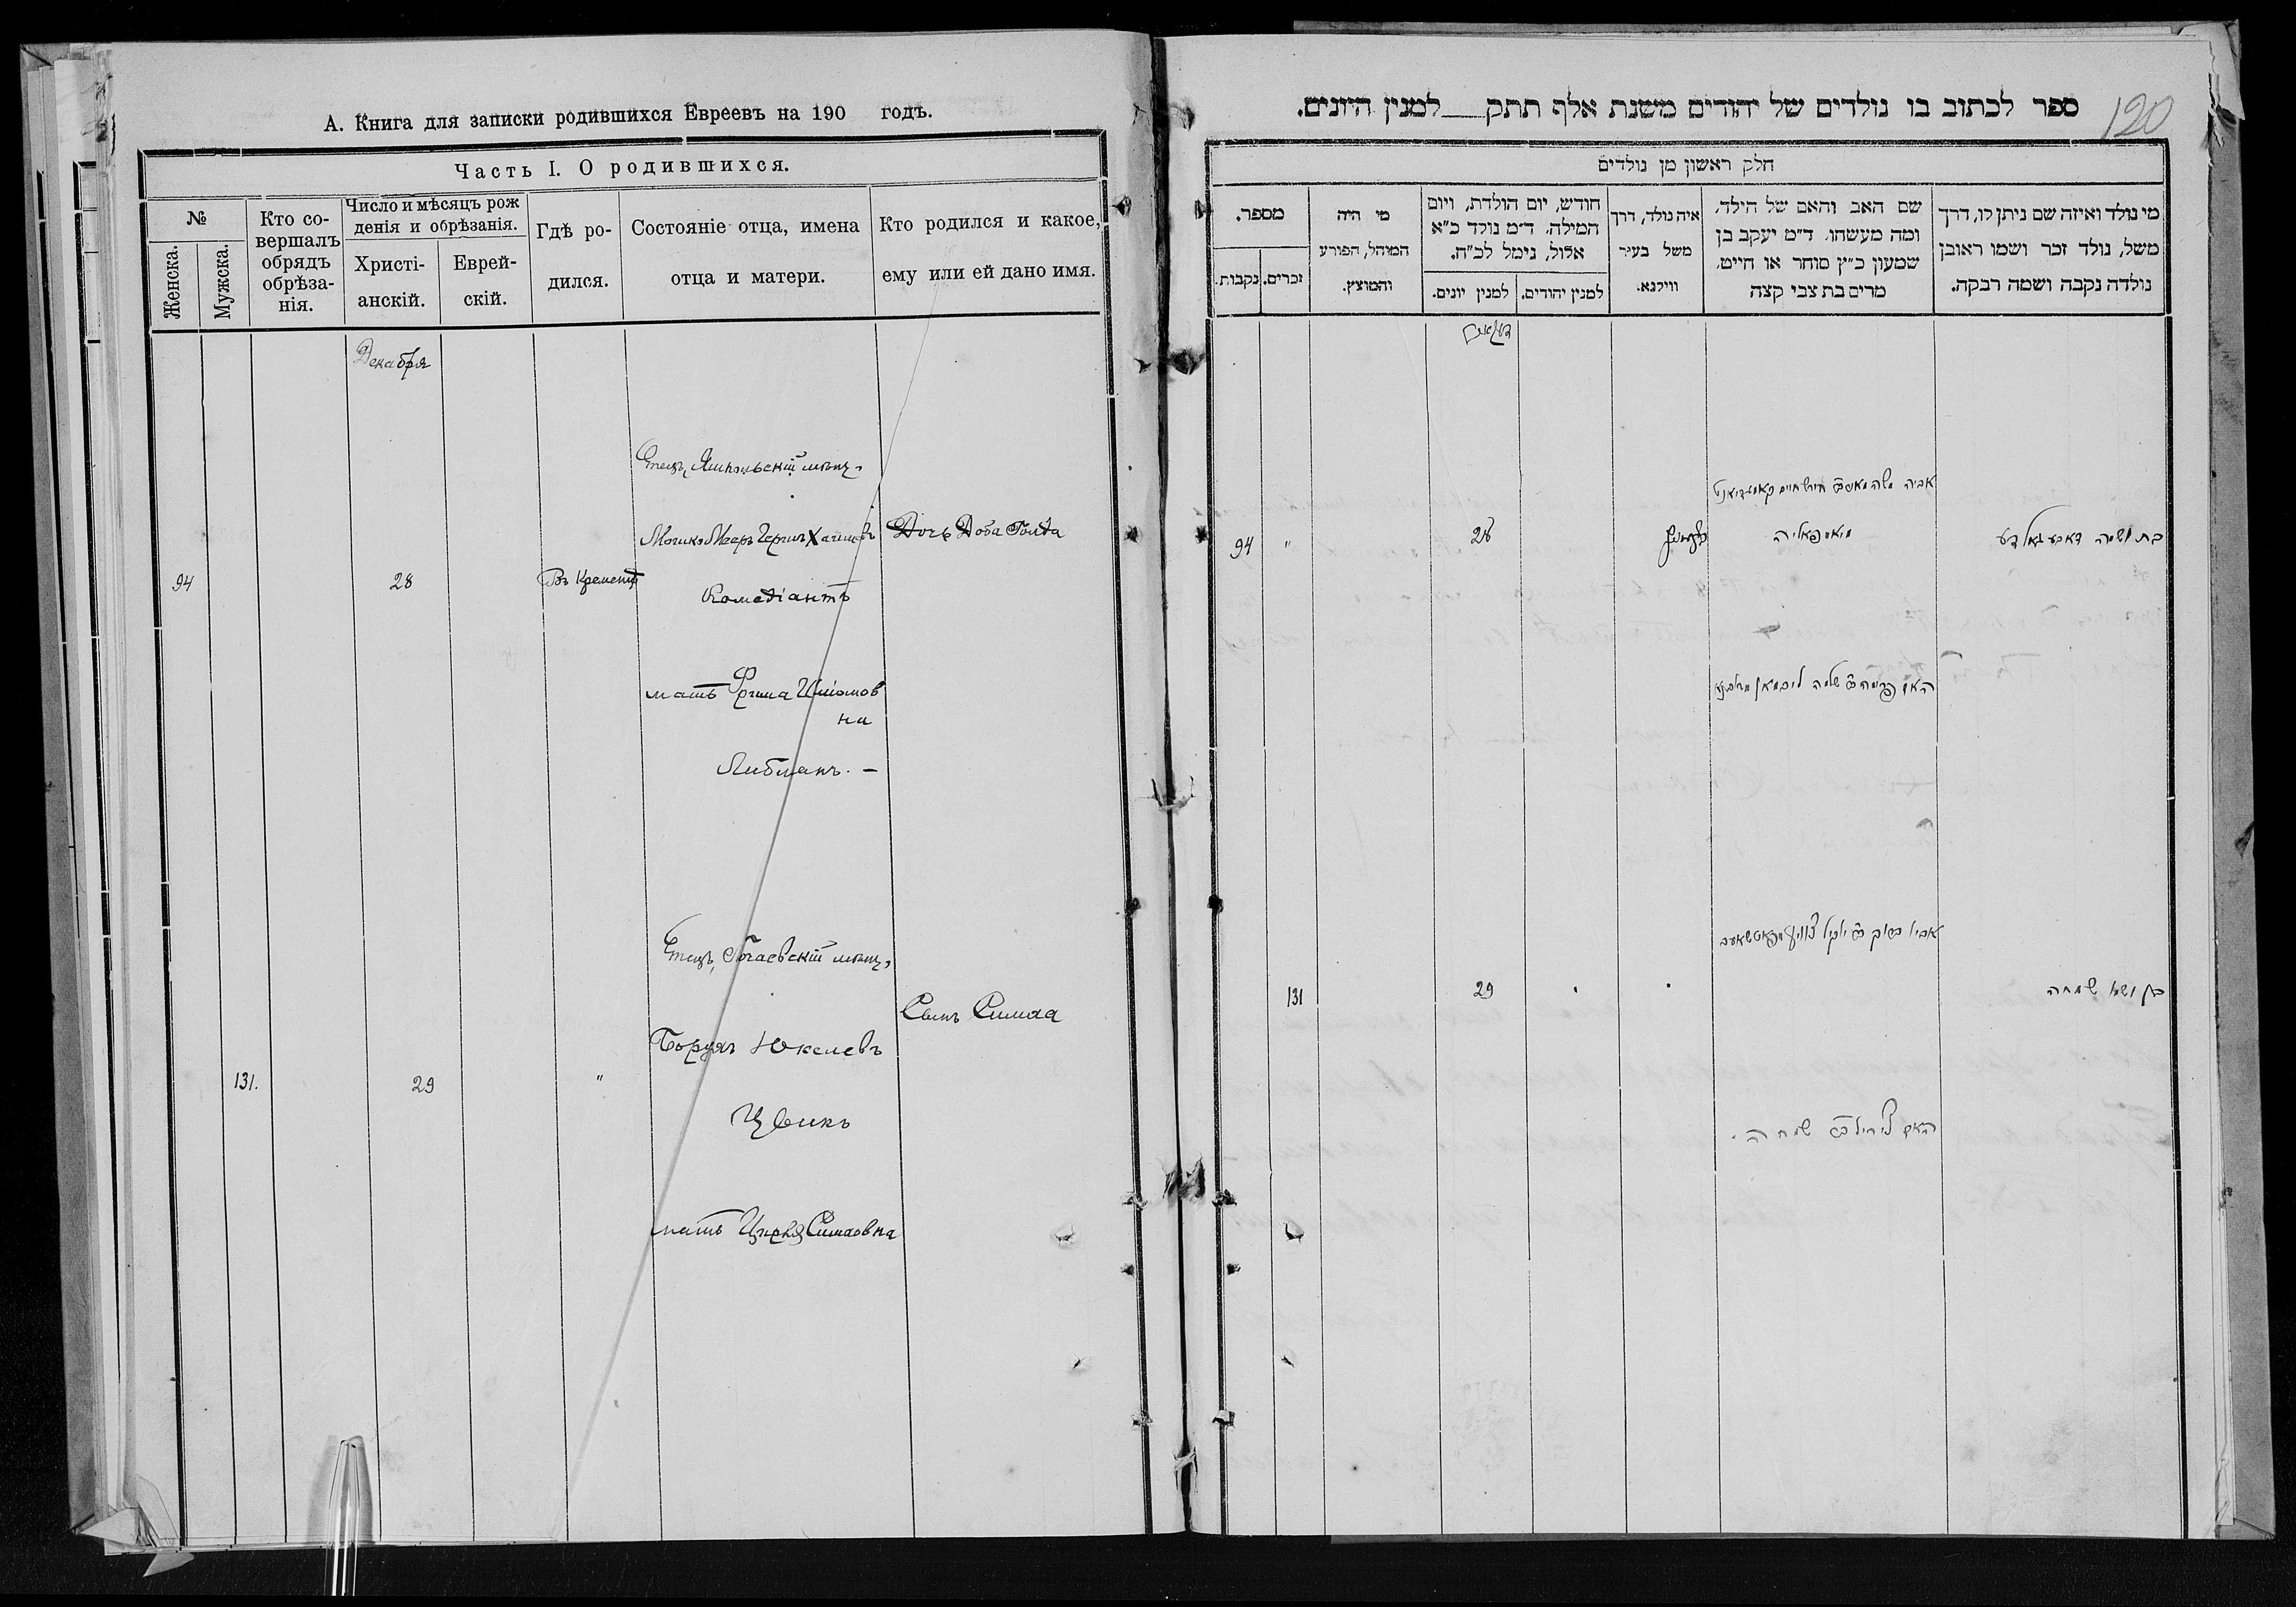 А. Книга для записки родившихся Евреевъ на 190 годъ.
Часть I. О родившихся.
№
Женска.
Мужска.
Кто со-
вершалъ
обрядъ
обрѣза-
нія.
Число и мѣсяцъ рож
денія и обрѣзанія.
Христі-
анскій.
Еврей-
скій.
Гдѣ ро-
дился.
Состояніе отца, имена
отца и матери.
Кто родился и какое,
ему или ей дано имя.
Декабря
94
28
Въ Кременцѣ
Отецъ, Ямпольскій мѣщ.
Мошко Мееръ Гершъ Хаимовъ
Комедіантъ
мать Фрима Шліомов
на
Либманъ. —
Дочь Доба Голда
131.
29
"
Отецъ, Почаевскій мѣщ.
Борухъ Юкелевъ
Цвикъ
мать Цирля Симховна
Сынъ Симха
120
ספר לכתוב בו נולדים של יהודים משנת אלף תתק למנין היונים.
חלק ראשון מן נולדים
מי נולד ואיזה שם ניתן לו, דרך
משל, נולד זכר ושמו ראובן
נולדה נקבה ושמה רבקה.
שם האב והאם של הילד,
ומה מעשהו. ד"מ יעקב בן
שמעון כ"ץ סוחר או חייט,
מרים בת צבי קצה
איה נולד, דרך
משל בעיר
ווילנא.
חודש, יום הולדת, ויום
המילה. ד"מ נולד כ"א
אלול, נימל לכ"ח.
למנין יהודים.
למנין יונים.
מי היה
המוהל, הפורע
והמוצץ.
מספר.
זכרים.
נקבות.
בת ושמה דאבע גאלדע
אביה משה מאיר הירש חיים קאמעדיאנט
מיאמפאליה
האם פרימה שלמה ליבמאן
28
"
94
בן ושמו שמחה
אביו ברוך יוקיל צוויק
האם צירל שמחה
29
131